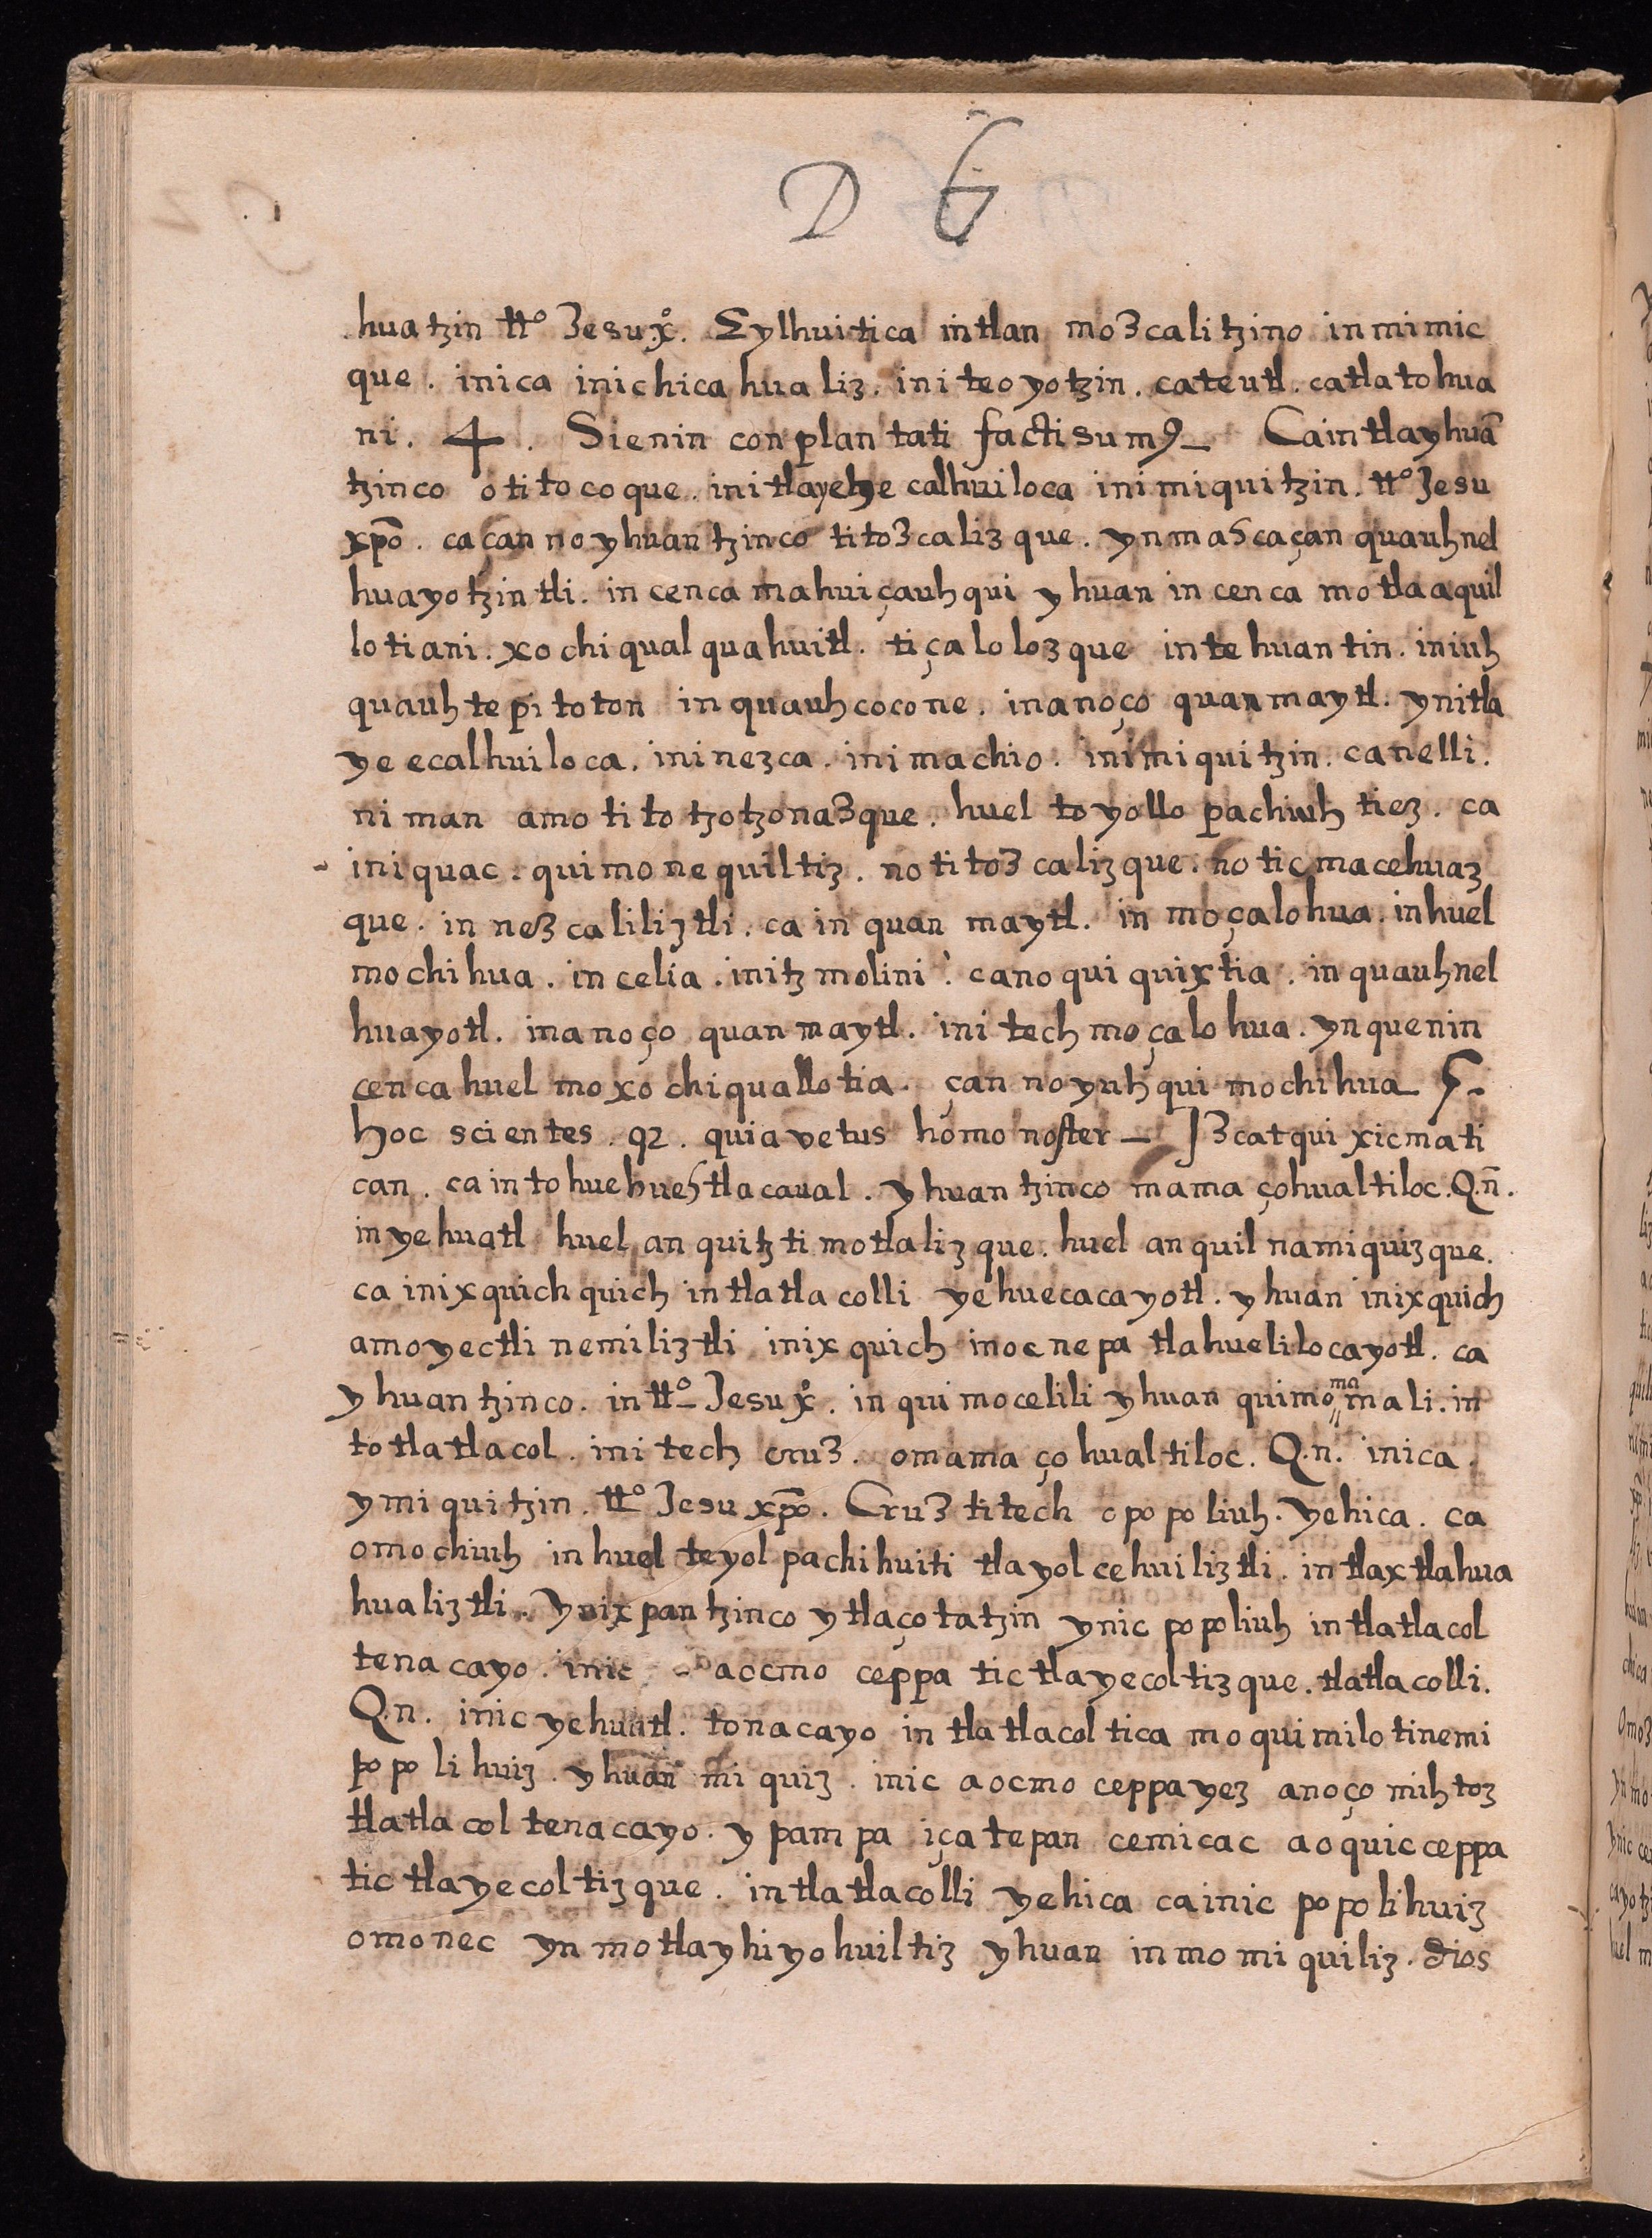 D G
huatzin tt° Jesu x°. Eylhuitica intlan mozcalitzino inmimic
que. inica inichicahualiz. initeoyotzin. cateutl. catlatohua
ni. 4. Sienin conplantati factisum9_ Caintlayhuā
tzinco otitocoque. initlaye calhuiloca inimiquitzin. tt° Jesu
xpō. caçan noyhuantzinco titozcalizque. ynmascaçan quauhnel
huayotzintli. in cenca mahuiçauhqui yhuan in cenca motlaaquil
lotiani. xochiqualquahuitl. tiçalolozque intehuantin. iniuh
quauhtepitoton inquauhcocone. inanoço quanmaytl. ynitla
yeecalhuiloca. ininezca. inimachio. inimiquitzin. canelli.
niman amo titotzotzonazque. huel toyollo pachiuhtiez. ca
iniquac. quimonequiltiz. notitozcalizque. noticmacehuaz
que. in nezcaliliztli. ca in quanmaytl. in moçalohua. inhuel
mochihua. in celia. initzmolini. cano quiquixtia. in quauhnel
huayotl. inanoço quanmaytl. initech moçalohua. ynquenin
cenca huel moxochiquallotia. çan noyuhqui mochihua_ 5.
hoc scientes. q2. quia vetus homo noster_ Izcatqui xicmati
can. cain tohuehuehtlacaual. yhuantzinco mamaçohualtiloc. Q.ñ.
inyehuatl huel anquitztimotlalizque. huel anquilnamiquizque.
ca inixquichquich intlatlacolli yehuecacayotl. yhuan inixquich
amoyectli nemiliztli inixquich inocnepa tlahuelilocayotl. ca
yhuantzinco. in tt°_ Jesu x°. in quimocelili yhuan quimomamali. in
totlatlacol. initech cruz. omamaçohualtiloc. Q.n. inica.
ymiquitzin. tt° Jesu xpō. Cruztitech opopoliuh. yehica. ca
omochiuh inhuel teyolpachihuiti tlayolcehuiliztli. intlaxtlahua
hualiztli. ynixpantzinco ytlaçotatzin ynic popoliuh intlatlacol
tenacayo. inic aocmo ceppa tictlayecoltizque. tlatlacolli.
Q.n. inic yehuatl. tonacayo in tlatlacoltica moquimilotinemi
popolihuiz. yhuan miquiz. inic aocmo ceppayez anoço mihtoz
tlatlacoltenacayo. ypampa içatepan cemicac aoquicceppa
tictlayecoltizque. intlatlacolli yehica cainic popolihuiz
omonec ynmotlayhiyohuiltiz yhuan inmomiquiliz. dios